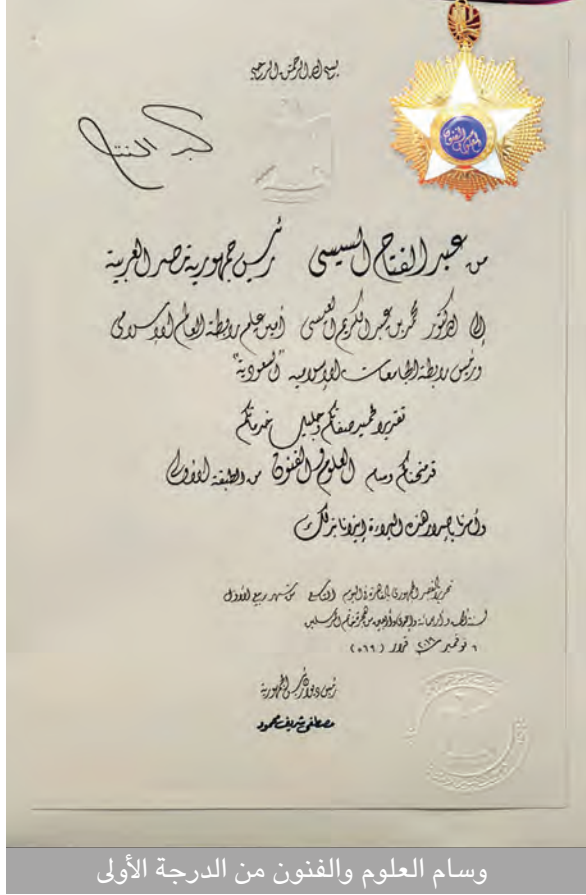 بسم الله الرحمن الرحيم
العلوم والفنون
من عبد الفتاح السيسى رئيس جمهورية مصر العربية
إلى الدكتور محمد بن عبد الكريم العيسى أمين عام رابطة العالم الإسلامى
ورئيس رابطة الجامعات الإسلامية "السعودية"
تقديرا لحميد صفاتكم وجليل خدماتكم
قد منحناكم وسام العلوم والفنون من الطبقة الأولى
وأمرنا بإصدار هذه البراءة إيذانا بذلك
تحريرا بالقصر الجمهورى بالقاهرة فى اليوم التاسع من شهر ربيع الأول
لسنة ألف وأربعمائة وإحدى وأربعين من هجرة خاتم المرسلين
٦ نوفمبر قرار
رئيس ديوان رئيس الجمهورية
مصطفى شريف محمود
وسام العلوم والفنون من الدرجة الأولى